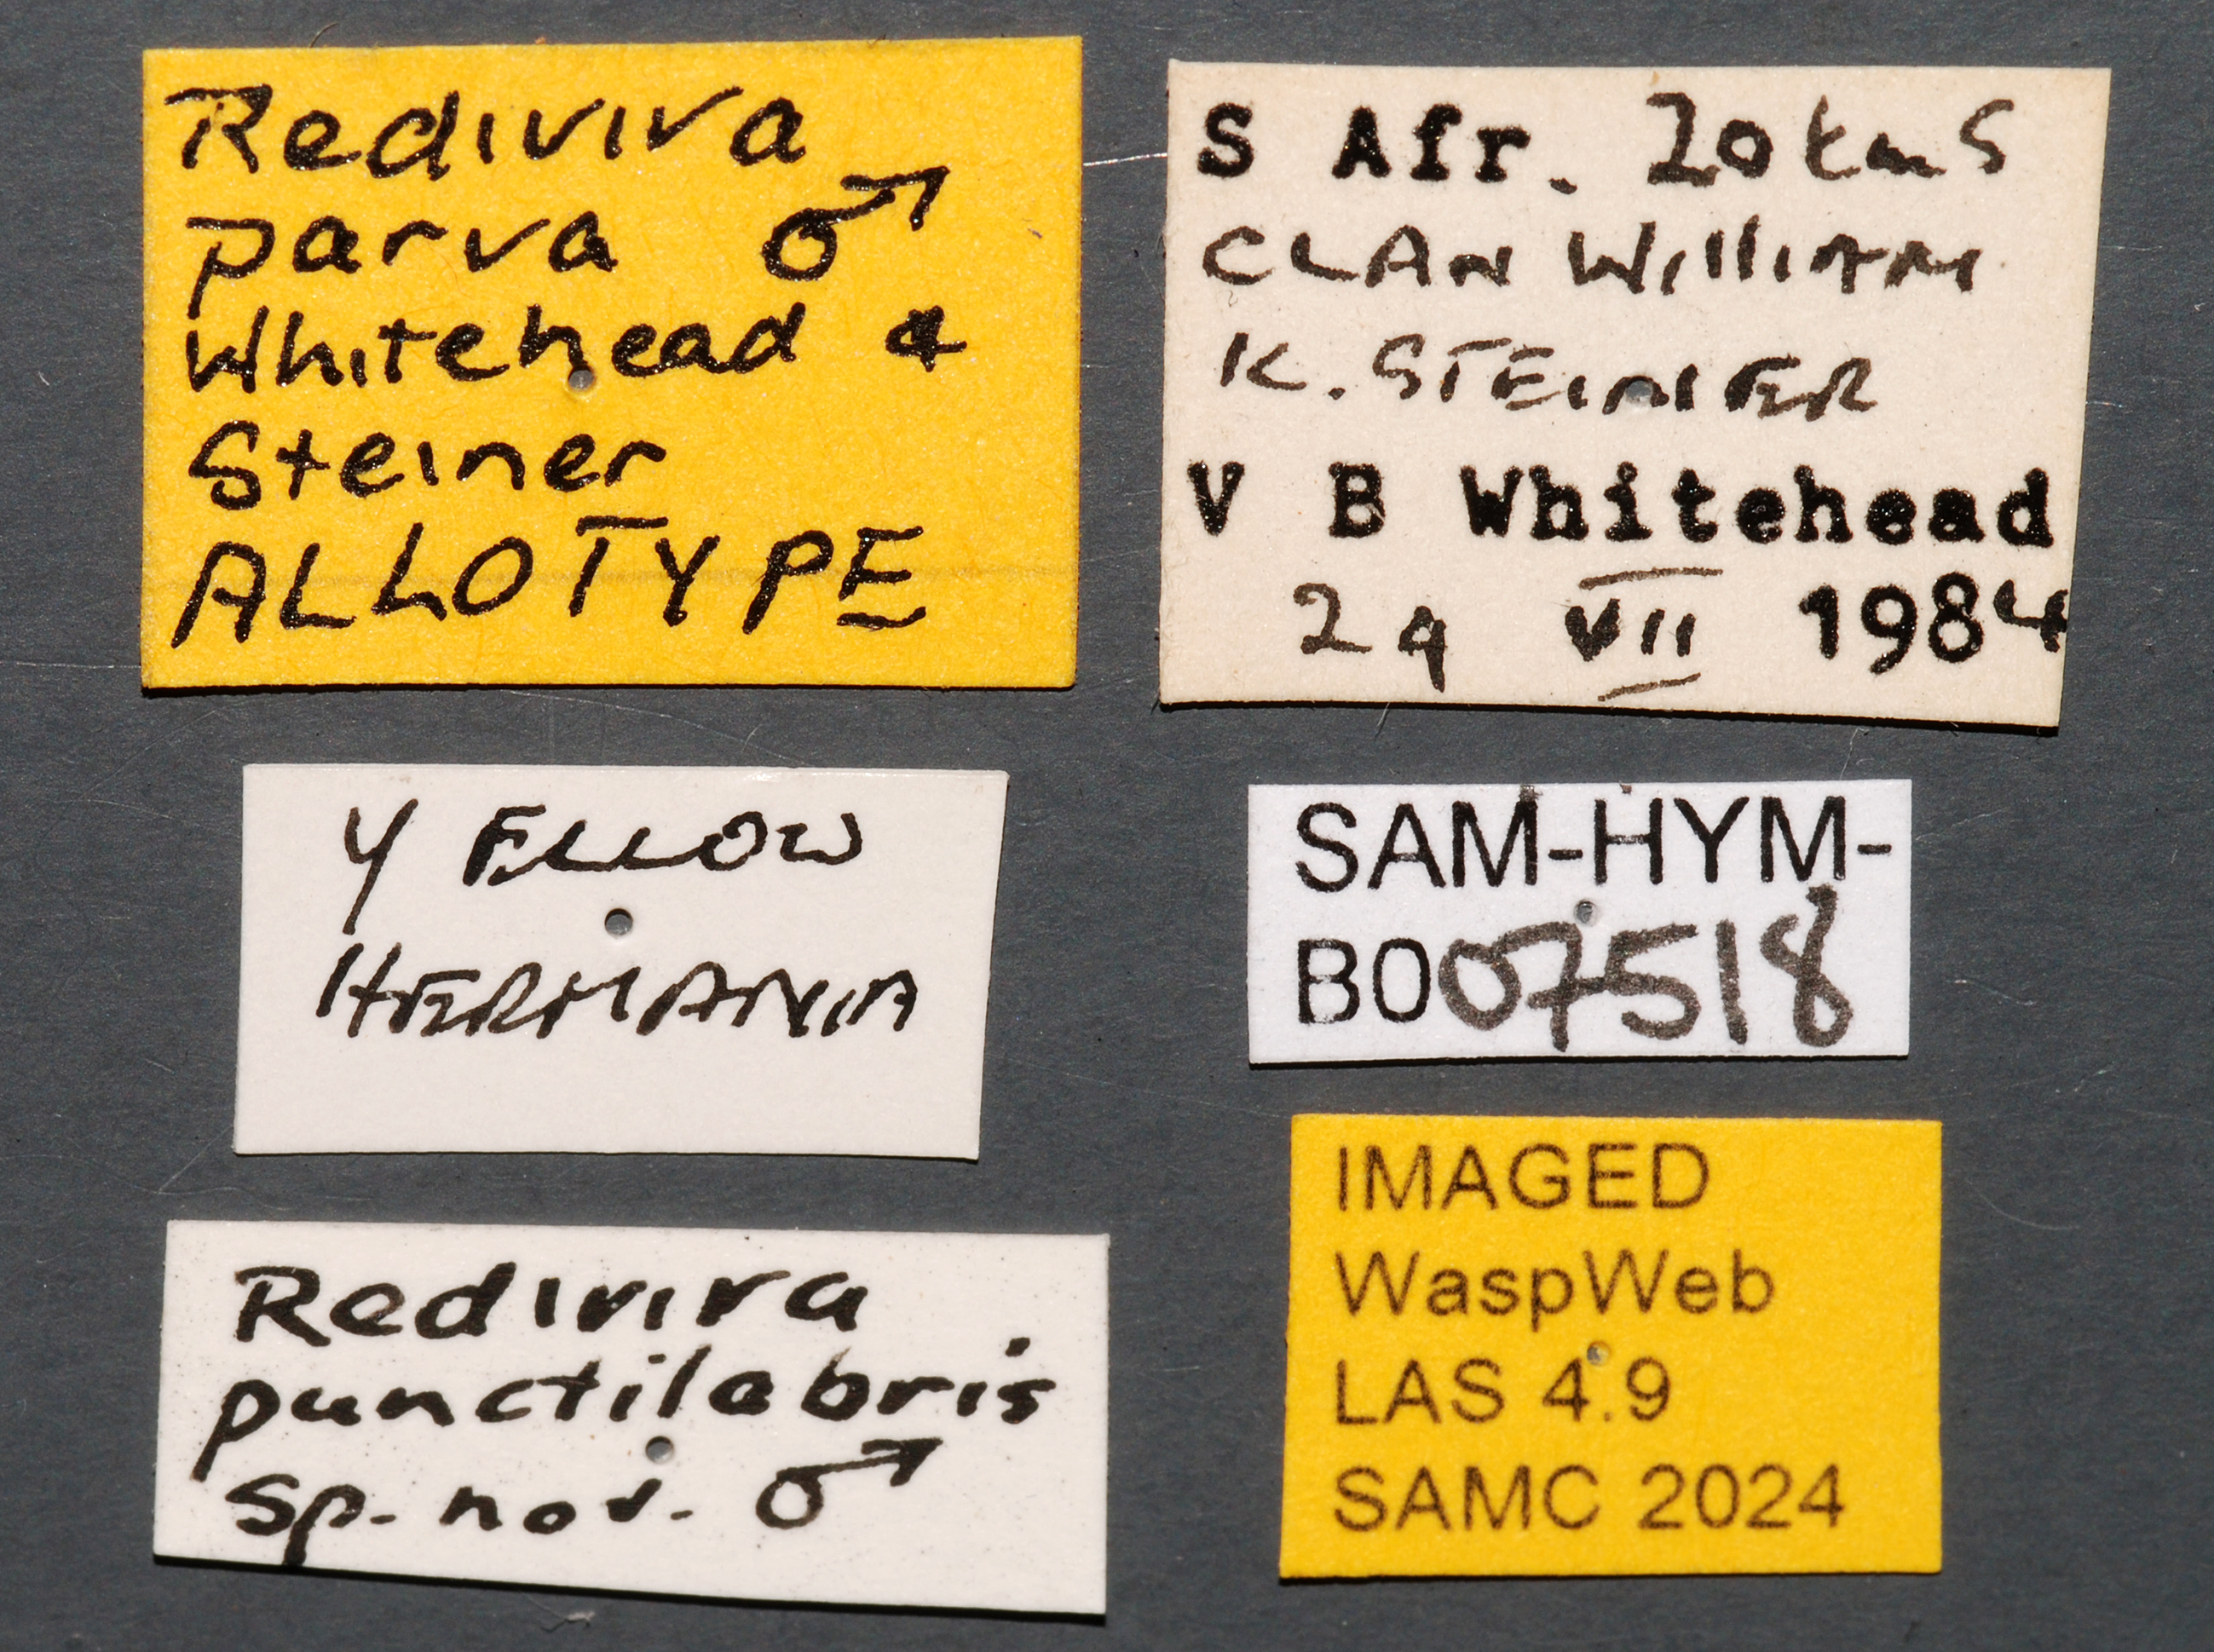 Rediviva
parva ♂
Whitehead &
Steiner
ALLOTYPE
S Afr. 20 km S
CLAN WILLIAM
K. STEINER
V B Whitehead
24 VII 1984
YELLOW
HERMANIA
SAM-HYM-
B007518
Rediviva
punctilabris
sp. nov. ♂
IMAGED
WaspWeb
LAS 4.9
SAMC 2024